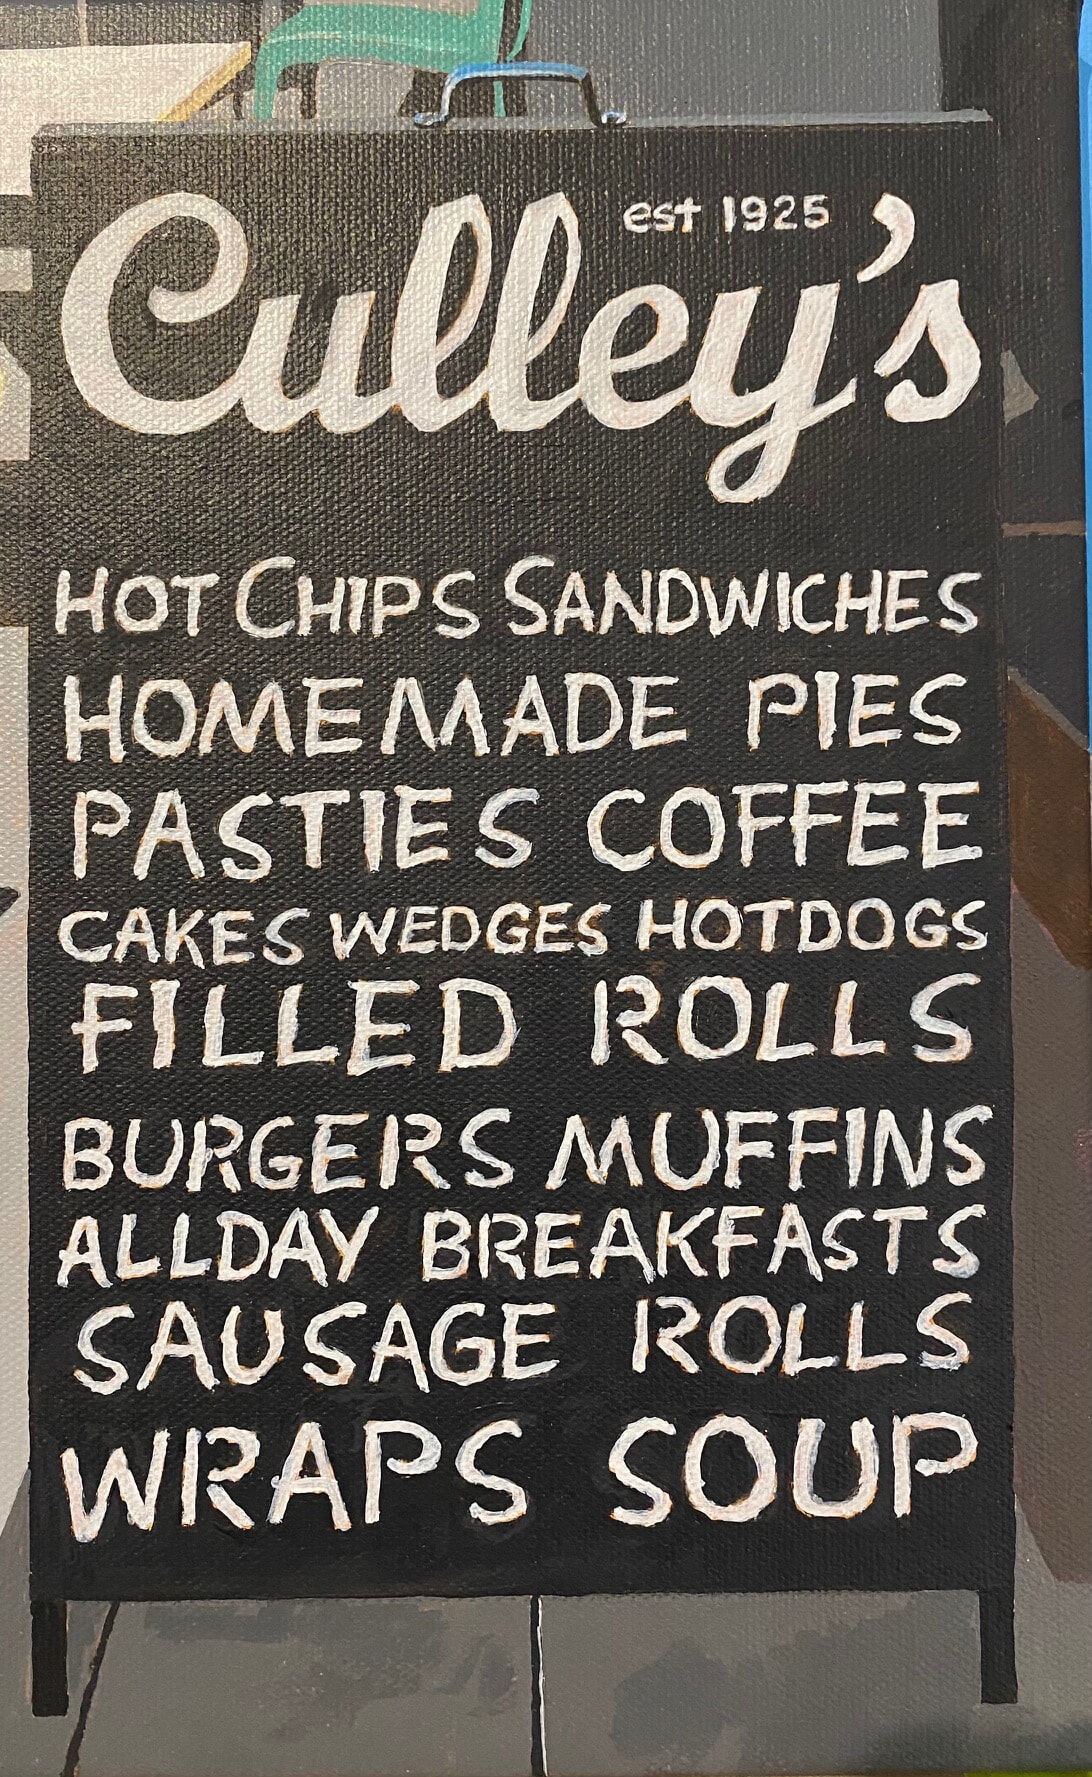 est 1925
Culley's
HOT CHIPS SANDWICHES
HOMEMADE PIES
PASTIES COFFEE
CAKES WEDGES HOTDOGS
FILLED ROLLS
BURGERS MUFFINS
ALLDAY BREAKFASTS
SAUSAGE ROLLS
WRAPS SOUP